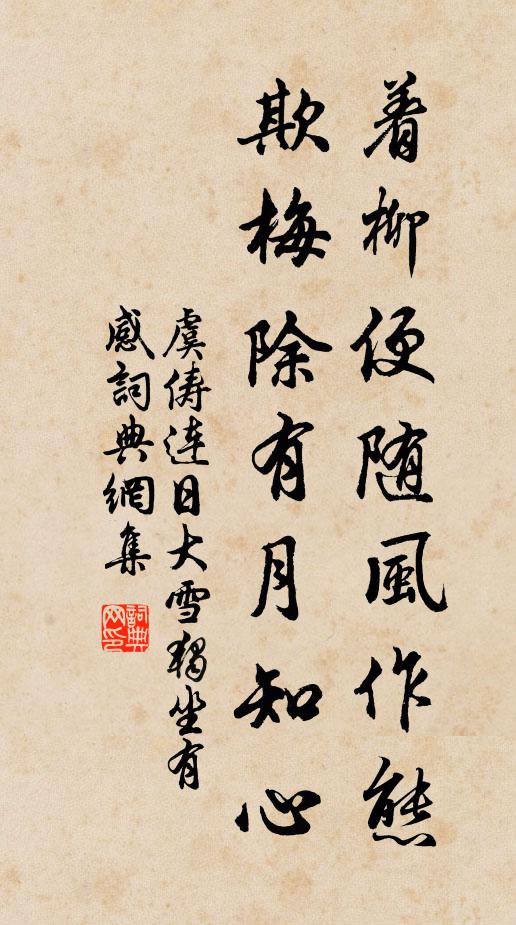 着柳便随風作態
欺梅除有月知心
虞俦連日大雪獨坐有
感詞典網集
詞典
网印